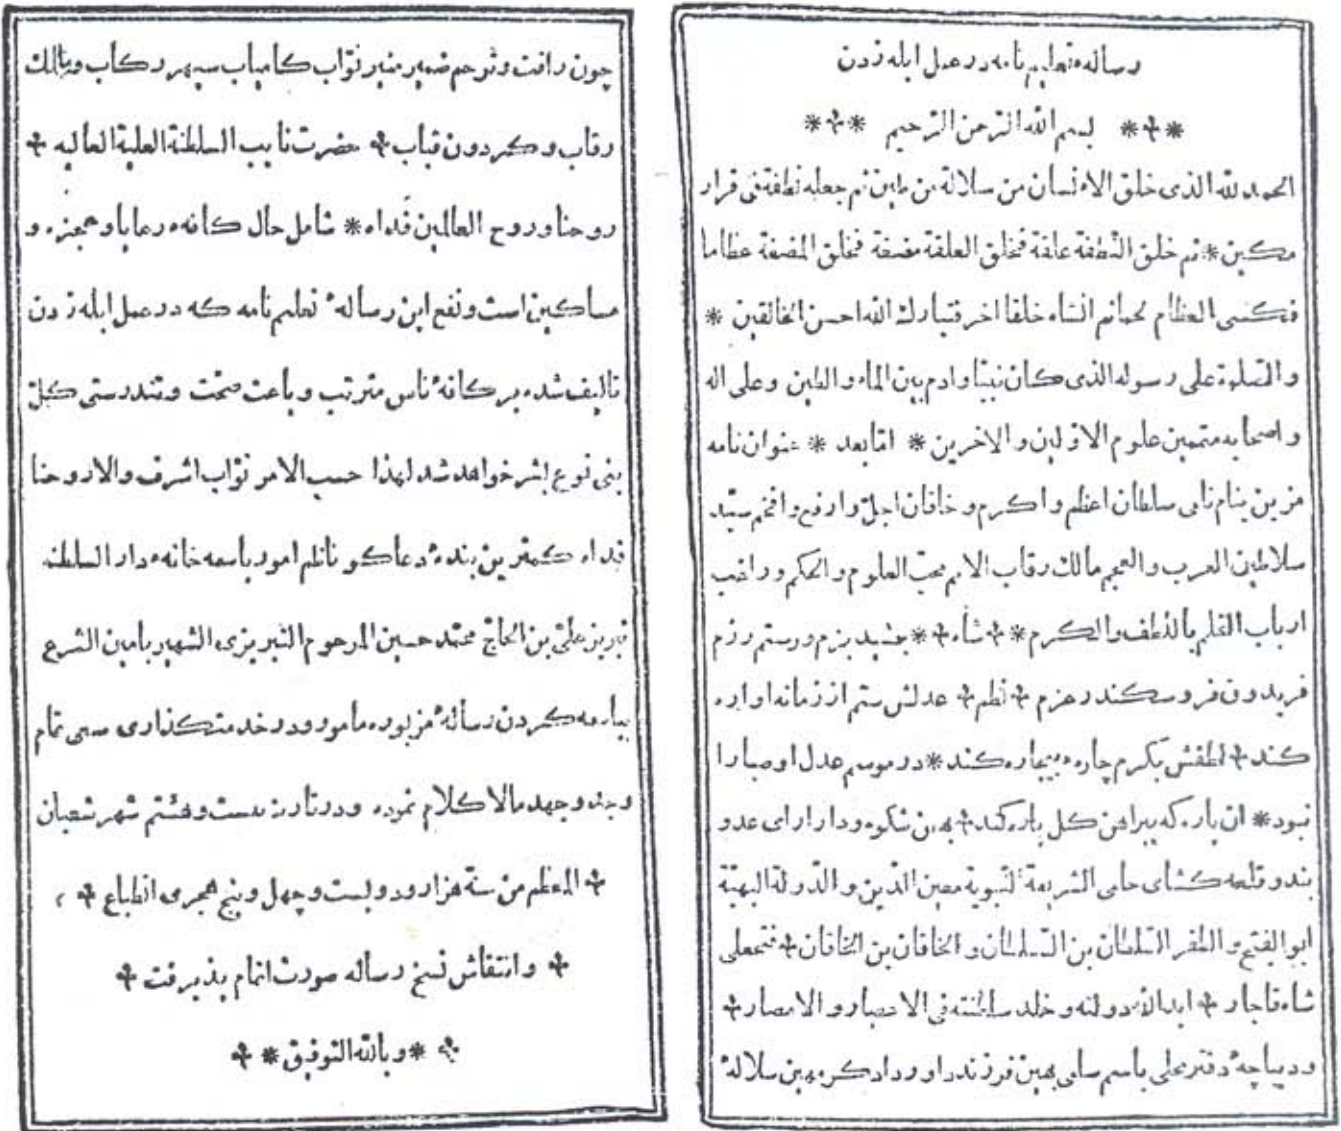 رساله تعلیم نامه در عمل ابله زدن
*✤* بسم الله الرحمن الرحیم *✤*
الحمد لله الذی خلق الانسان من سلالة من طین ثم جعله نطفة فی قرار
مکین * ثم خلق النطفة علقة فخلق العلقة مضغة فخلق المضغة عظاما
فکسی العظام لحما ثم انشاه خلقا اخر فتبارک الله احسن الخالقین *
و الصلوة علی رسوله الذی کان نبیا و ادم بین الماء و الطین و علی اله
و اصحابه متممین علوم الاولین و الاخرین * اما بعد * عنوان نامه
مزین بنام نامی سلطان اعظم و اکرم و خاقان اجل و ارفع و افخم سید
سلاطین العرب و العجم مالک رقاب الامم محب العلوم و الحکم و راغب
ارباب القلم باللطف و الکرم *✤ شاه ✤* جمشید بزم و رستم رزم
فریدون فر و سکندر عزم ✤ نظم ✤ عدلش ستم از زمانه اواره
کند ✤ لطفش بکرم چاره بیچاره کند * در موسم عدل او صبا را
نبود * ان یاره که پیراهن کل پاره کند ✤ بهین شکوه و دارا رای عدو
بند و قلعه کشای حامی الشریعة النبویة معین الدین و الدولة البهیة
ابو الفتح و الظفر السلطان بن السلطان و الخاقان بن الخاقان ✤ فتحعلی
شاه قاجار ✤ ابد الله دولته و خلد سلطنته فی الاعصار و الامصار ✤
و دیباچهٔ دفتر محلی باسم سامی بهین فرزند داور دادکر مهین سلالهٔ
چون رافت و ترحم ضمیر منیر نواب کامیاب سپهر رکاب و مالک
رقاب و کردون قباب ✤ حضرت نایب السلطنة العلیة العالیه ✤
روحنا و روح العالمین فداه * شامل حال کافه رعایا و عجزه و
مساکین است و نفع این رسالهٔ تعلیم نامه که در عمل ابله زدن
تالیف شده بر کافهٔ ناس مترتب و باعث صحت و تندرستی کل
بنی نوع بشر خواهد شد لهذا حسب الامر نواب اشرف والا روحنا
فداه کمترین بندهٔ دعاکو ناظم امور باسمه خانه دار السلطنه
تبریز علی بن الحاج محمد حسین المرحوم التبریزی الشهیر بامین الشرع
بباسمه کردن رسالهٔ مزبوره مامور و در خدمتکذاری سعی تمام
و جد و جهد مالا کلام نموده و در تاریخ بیست و هشتم شهر شعبان
✤ المعظم من سنة هزار و دویست و چهل و پنج هجری انطباع ✤
✤ و انتقاش نسخ رساله صورت اتمام پذیرفت ✤
✤ * و بالله التوفیق * ✤